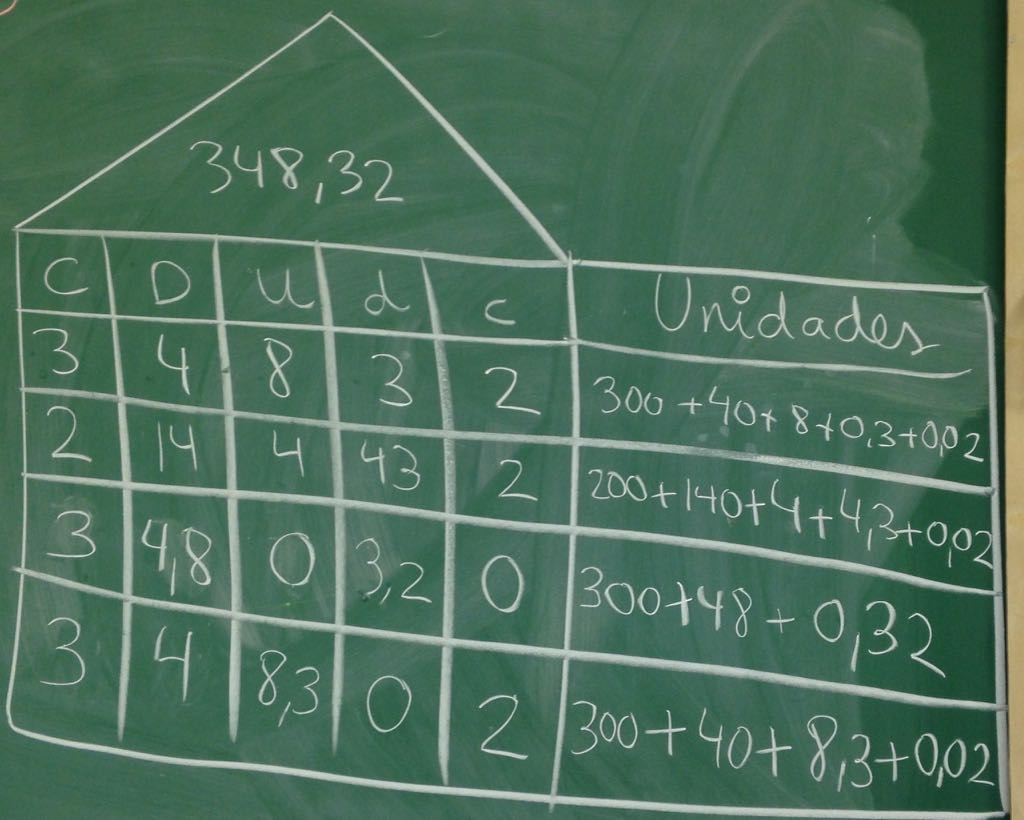 348,32
C D U d c Unidades
3 4 8 3 2 300+40+8+0,3+0,02
2 14 4 43 2 200+140+4+4,3+0,02
3 4,8 0 3,2 0 300+48+0,32
3 4 8,3 0 2 300+40+8,3+0,02